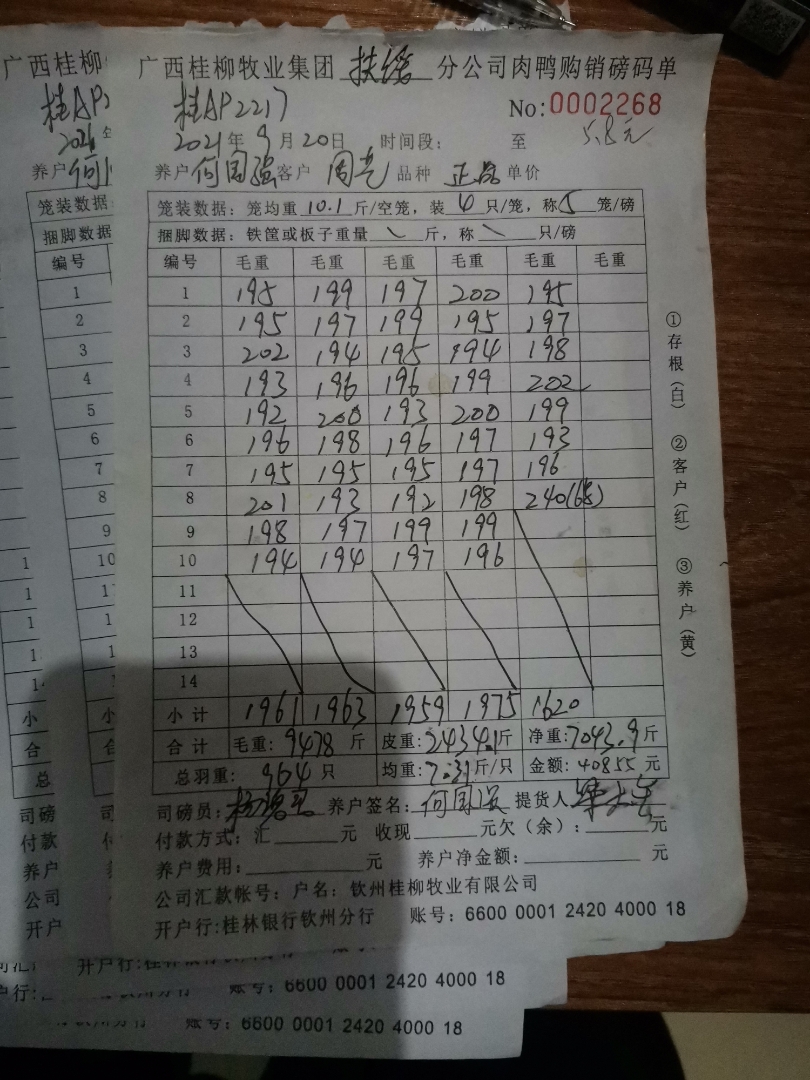 广西桂柳牧业集团 扶绥 分公司肉鸭购销磅码单
桂AP2217 No:0002268
2021年9月20日 时间段: 至 5.8元
养户 何国强 客户 周亮 品种 正品 单价
笼装数据:笼均重 10.1 斤/空笼,装 4 只/笼,称 5 笼/磅
捆脚数据:铁筐或板子重量 \ 斤,称 \ 只/磅
编号 毛重 毛重 毛重 毛重 毛重 毛重
1 195 199 197 200 195
2 195 197 199 195 197
3 202 194 195 194 198
4 193 196 196 199 202
5 192 200 193 200 199
6 196 198 196 197 193
7 195 195 195 197 196
8 201 193 192 198 240(6笼)
9 198 197 199 199
10 194 194 197 196
11
12
13
14
小计 1961 1963 1959 1975 1620
合计 毛重: 9478 斤 皮重:2434.1斤 净重:7043.9斤
总羽重: 964 只 均重:7.31斤/只 金额:40855 元
司磅员: 养户签名: 何国强 提货人
付款方式:汇 元 收现 元欠(余): 元
养户费用: 元 养户净金额: 元
公司汇款帐号:户名:钦州桂柳牧业有限公司
开户行:桂林银行钦州分行 账号:6600 0001 2420 4000 18
①存根(白) ②客户(红) ③养户(黄)
广西桂柳
桂AP2
养户
笼装数据
捆脚数据
编号
1
2
3
4
5
6
7
8
9
10
小
合
总
司磅
付款
养户
公司
开户
账号:6600 0001 2420 4000 18
账号:6600 0001 2420 4000 18